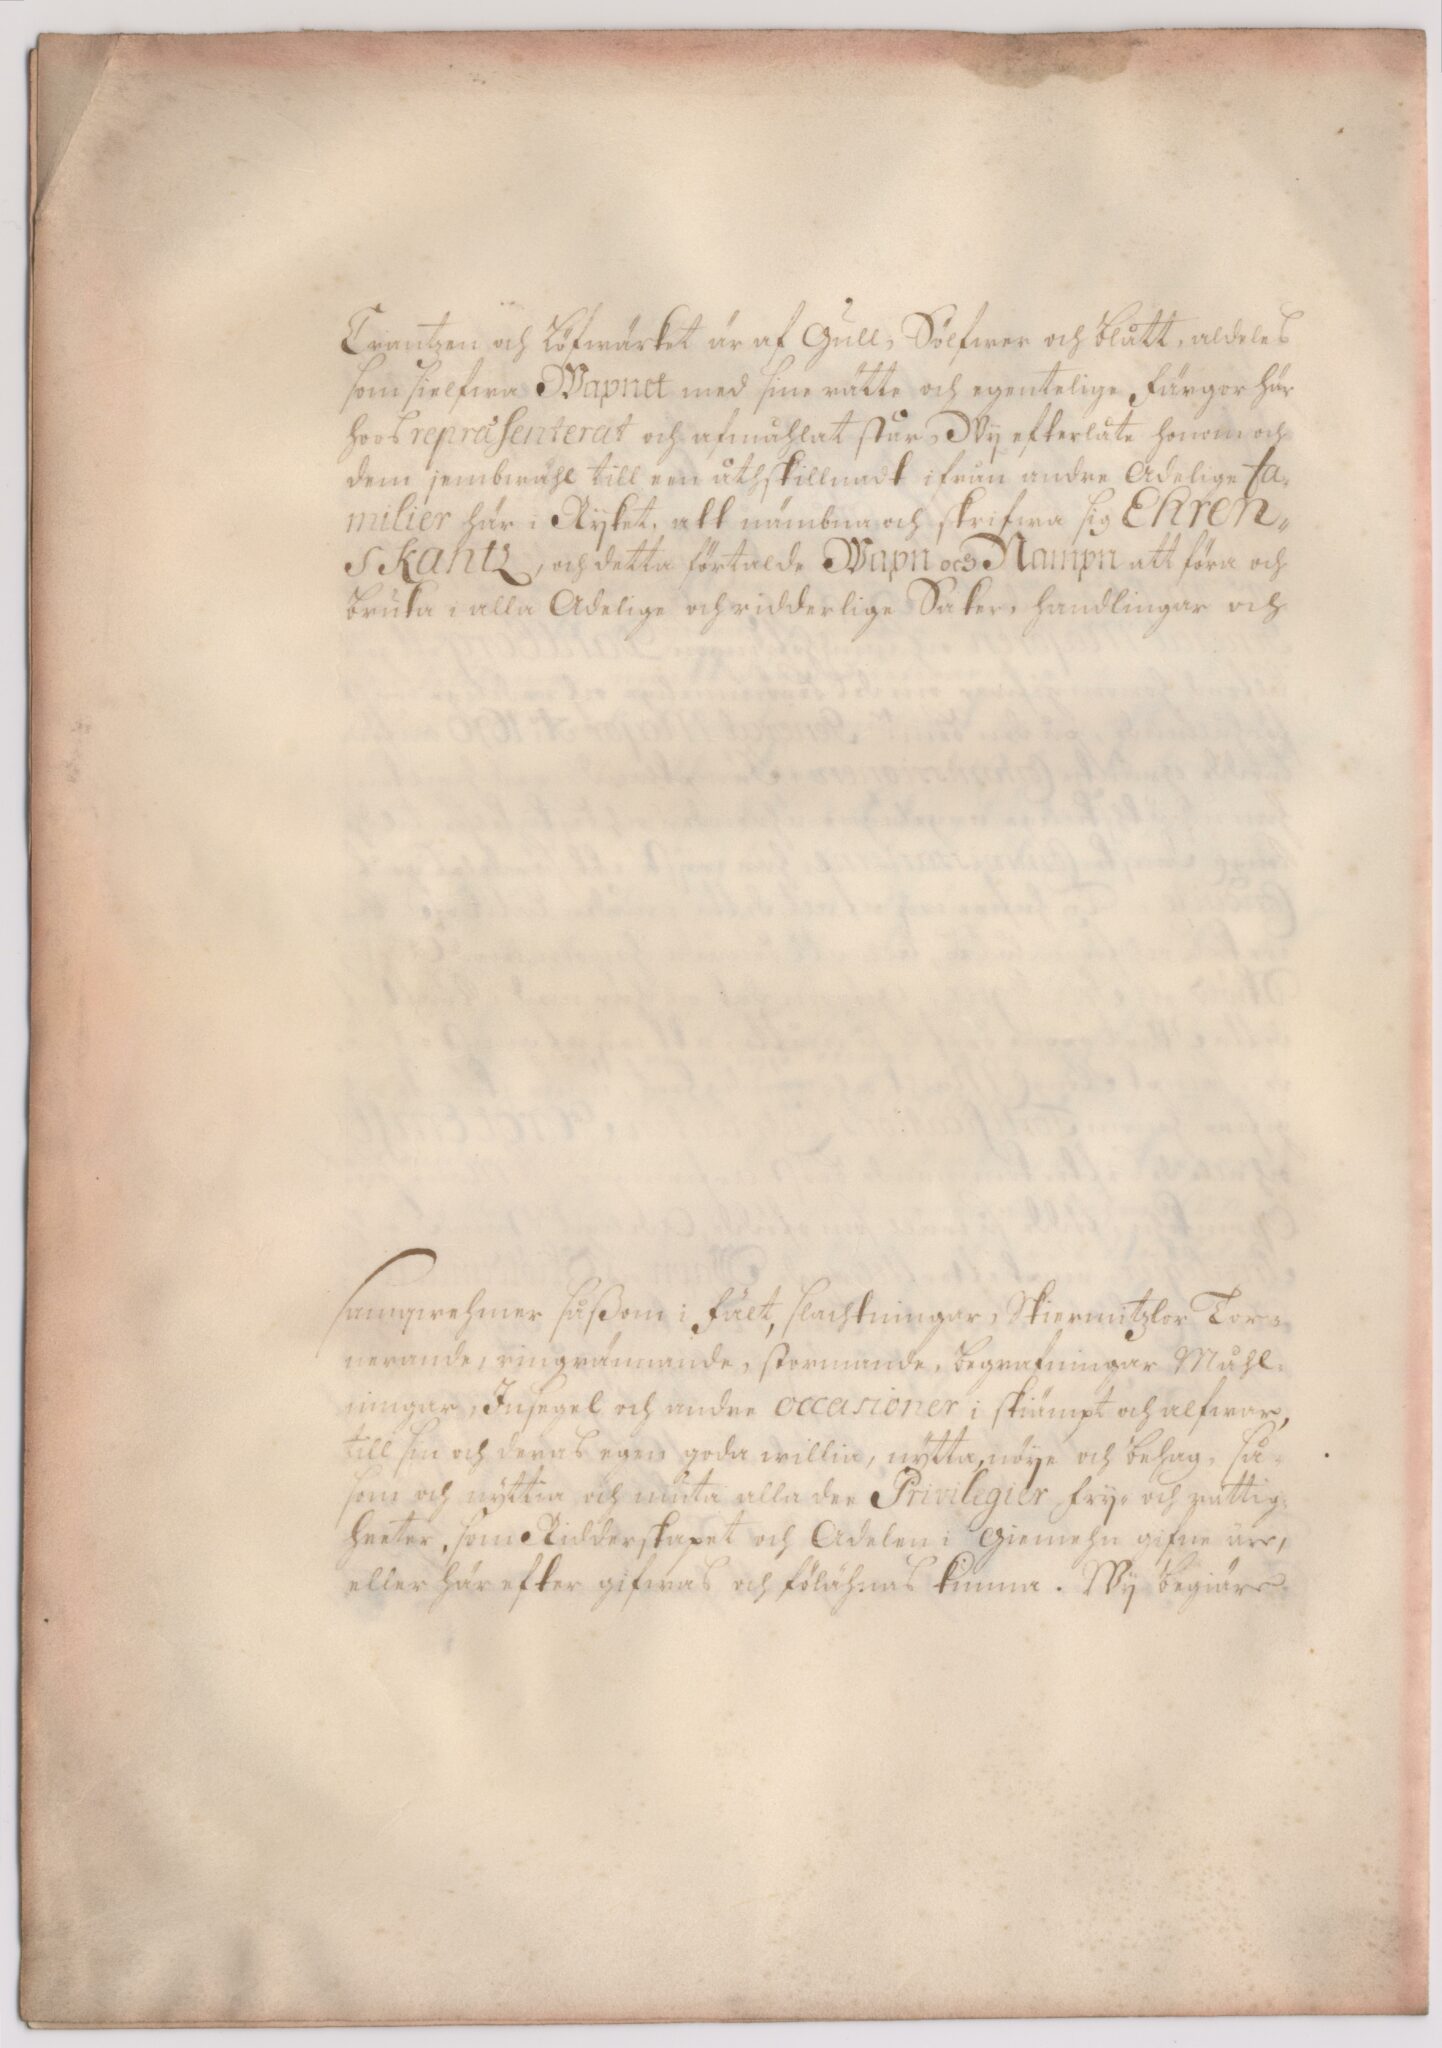 Crantzen och Löfwärket är af Gull, Sölfwer och blått, aldeles
som sielfwa Wapnet med sine rätte och egentelige färgor här
hoos repræsenterat och afmåhlat står, Wy efterlåte honom och
dem jembwähl till een åthskillnadt ifrån andre Adelige fa-
milier här i Ryket, att nämbna och skrifwa sig Ehren-
skantz, och detta förtalde Wapn och Nampn att föra och
bruka i alla Adelige och ridderlige Saker, handlingar och
samqwehmer såßom i fält, slachtningar, Skiermitzlor Tor-
nerande, ringrännande, stormande, begrafningar Måhl-
ningar, Insegel och andre occasioner i skiämpt och alfwar,
till sin och deras egen goda willia, nytta, nöye och behag, så-
som och nyttia och niuta alla dee Privilegier fry- och rättig-
heeter, som Ridderskapet och Adelen i Giemehn gifne äre,
eller här efter gifwas och förlähnas kunna. Wy begiäre